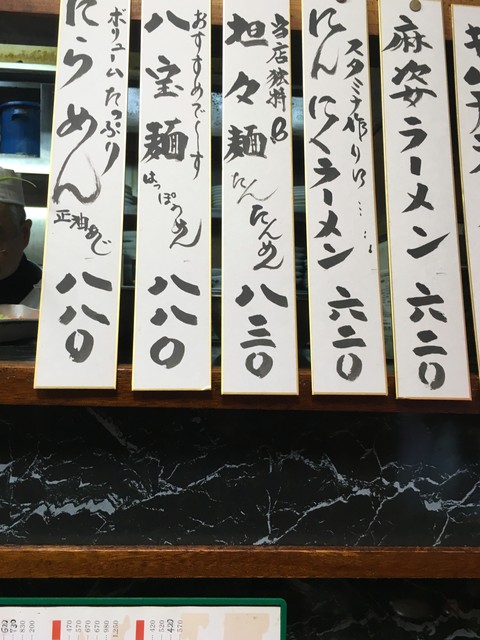 麻姿ラーメン 六二〇
スタミナ作りに……
にんにくラーメン 六二〇
当店独特の
坦々麺 たんたんめん 八三〇
おすすめで〜す
八宝麺 はっぽうめん 八八〇
ボリュームたっぷり
にらめん 正油あじ 八八〇